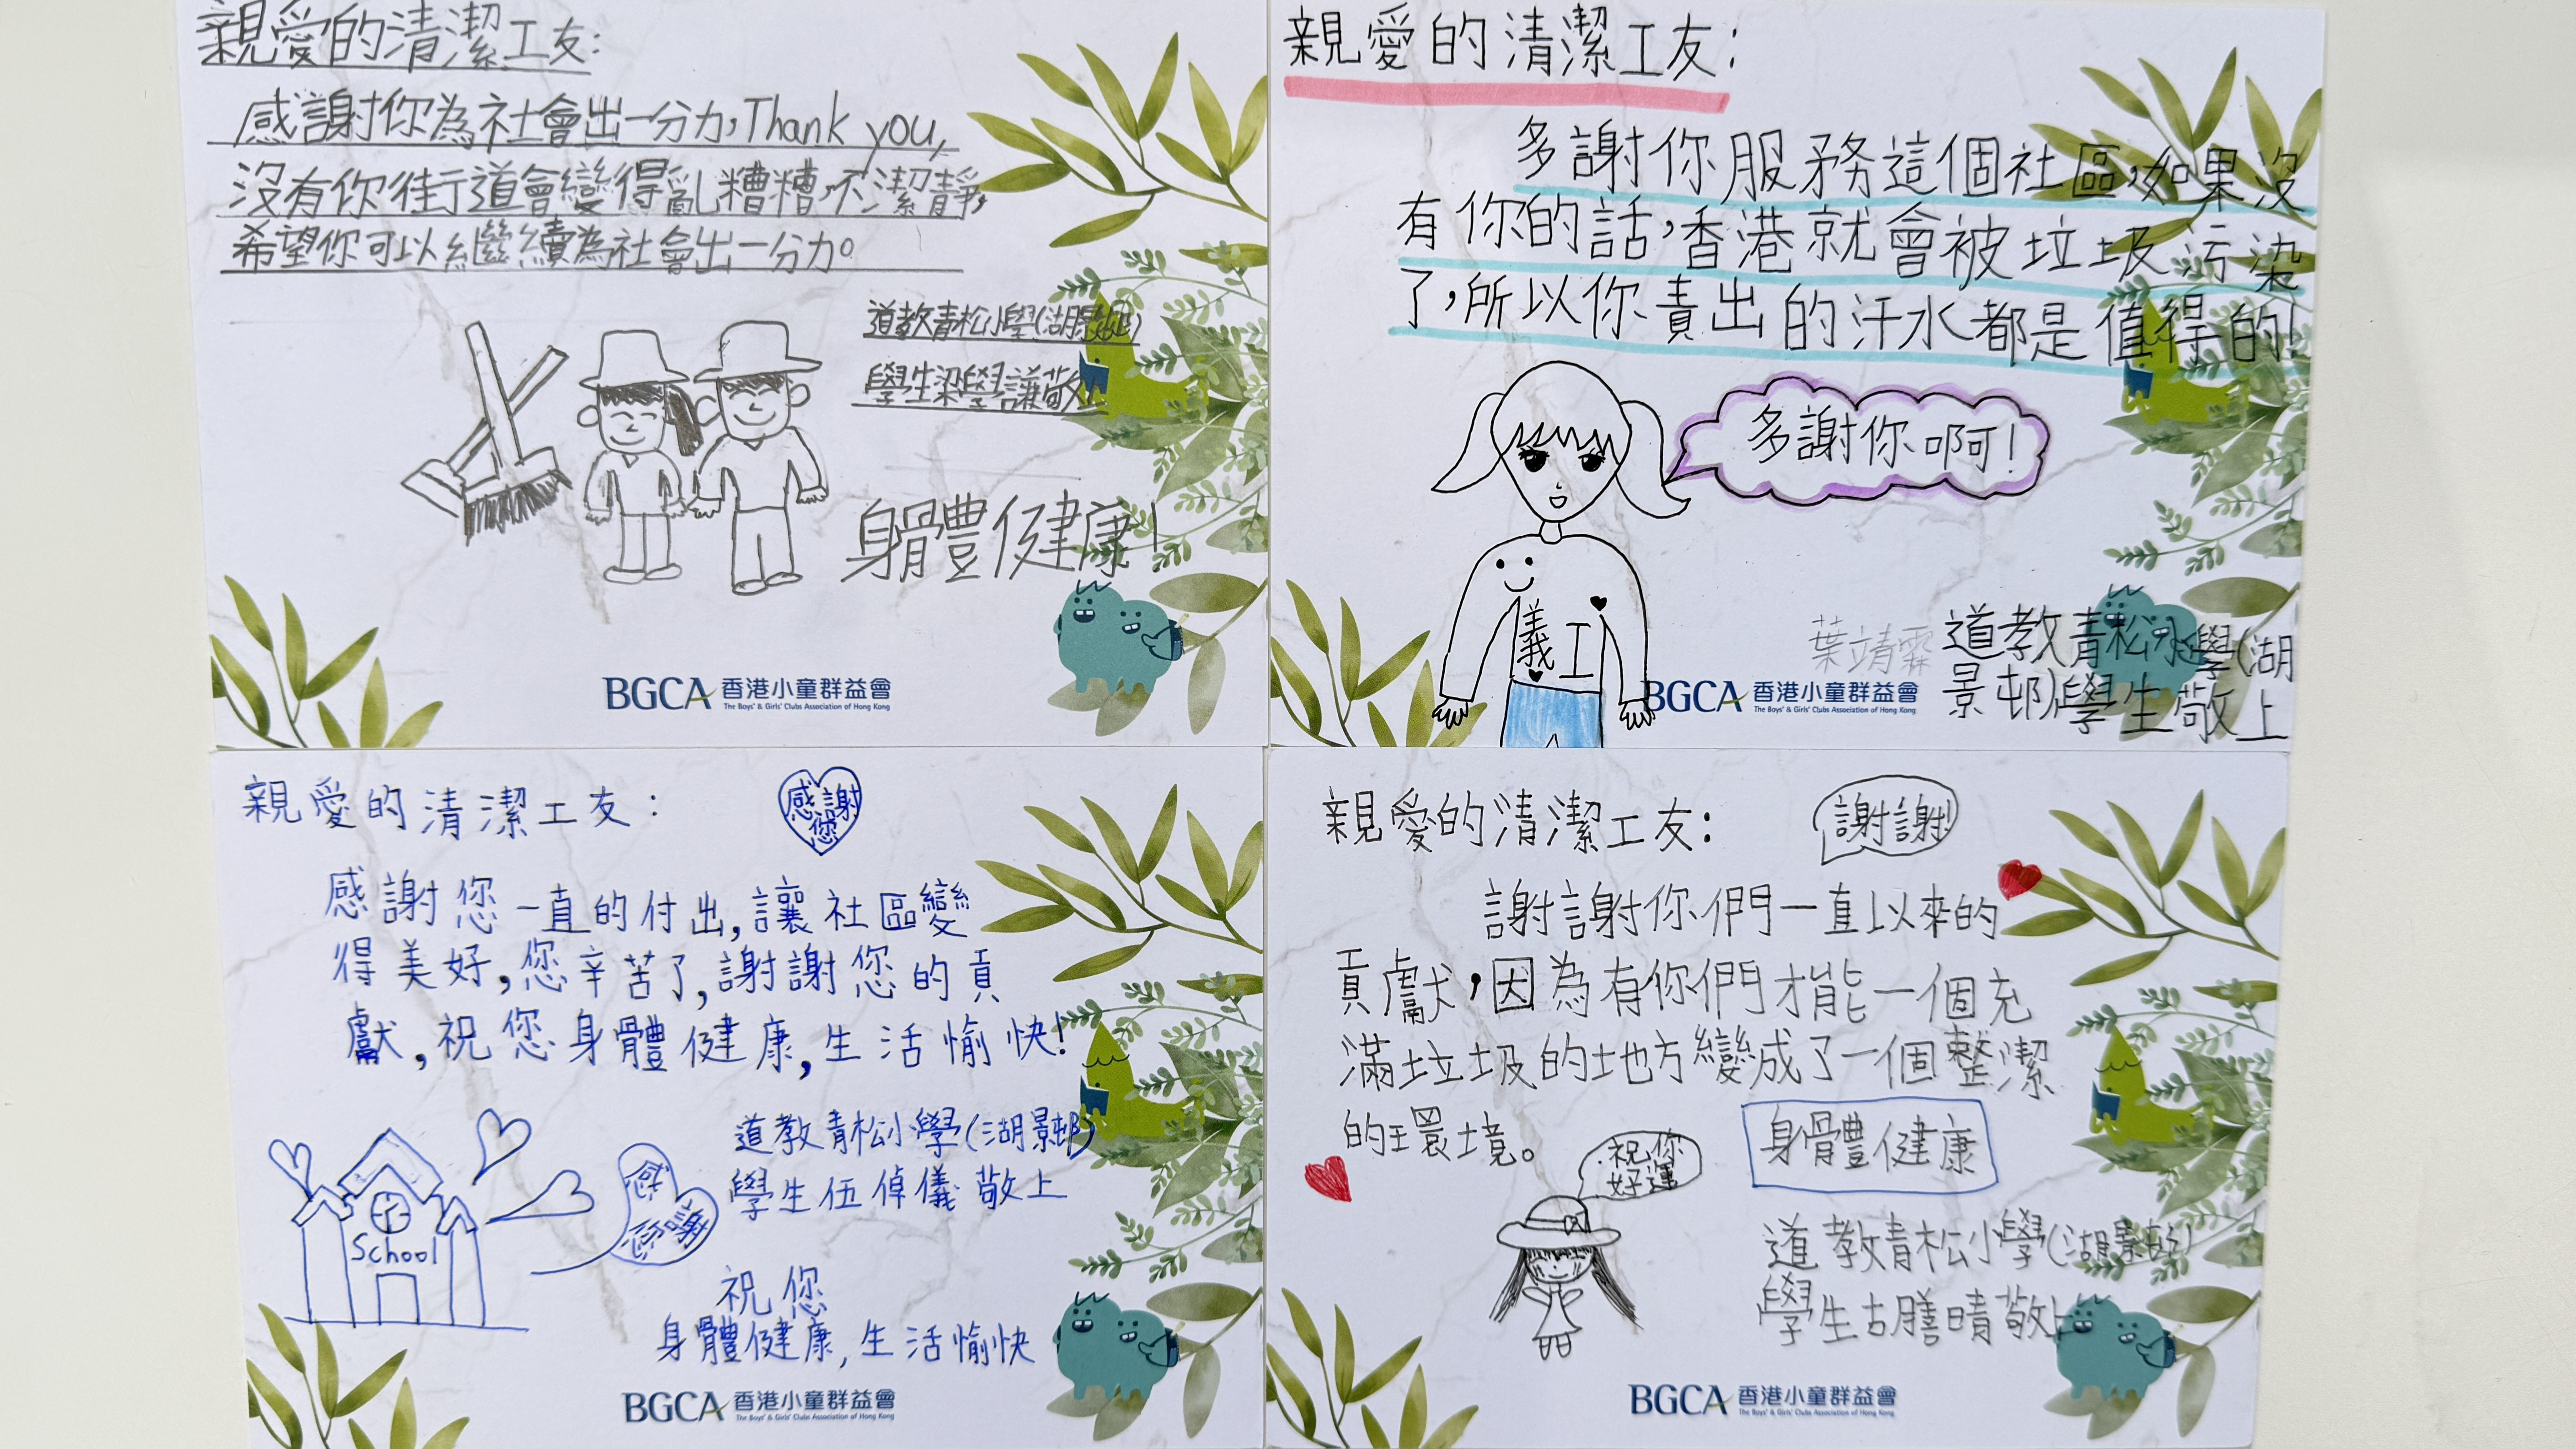 親愛的清潔工友:
感謝你為社會出一分力,Thank you,
沒有你街道會變得亂糟糟,不潔靜,
希望你可以繼續為社會出一分力。
道教青松小學(湖景邨)
學生梁學謙敬上
身體健康!
BGCA 香港小童群益會
The Boys' & Girls' Clubs Association of Hong Kong
親愛的清潔工友:
多謝你服務這個社區,如果沒
有你的話,香港就會被垃圾污染
了,所以你責出的汗水都是值得的!
多謝你啊!
義工
葉靖霖
道教青松小學(湖
景邨)學生敬上
BGCA 香港小童群益會
The Boys' & Girls' Clubs Association of Hong Kong
親愛的清潔工友:
感謝您
感謝您一直的付出,讓社區變
得美好,您辛苦了,謝謝您的貢
獻,祝您身體健康,生活愉快!
道教青松小學(湖景邨)
學生伍倬儀敬上
School
感謝您
祝您
身體健康,生活愉快
BGCA 香港小童群益會
The Boys' & Girls' Clubs Association of Hong Kong
親愛的清潔工友:
謝謝!
謝謝你們一直以來的
貢獻,因為有你們才能一個充
滿垃圾的地方變成了一個整潔
的環境。
祝你
好運
身體健康
道教青松小學(湖景邨)
學生古膳晴敬上
BGCA 香港小童群益會
The Boys' & Girls' Clubs Association of Hong Kong